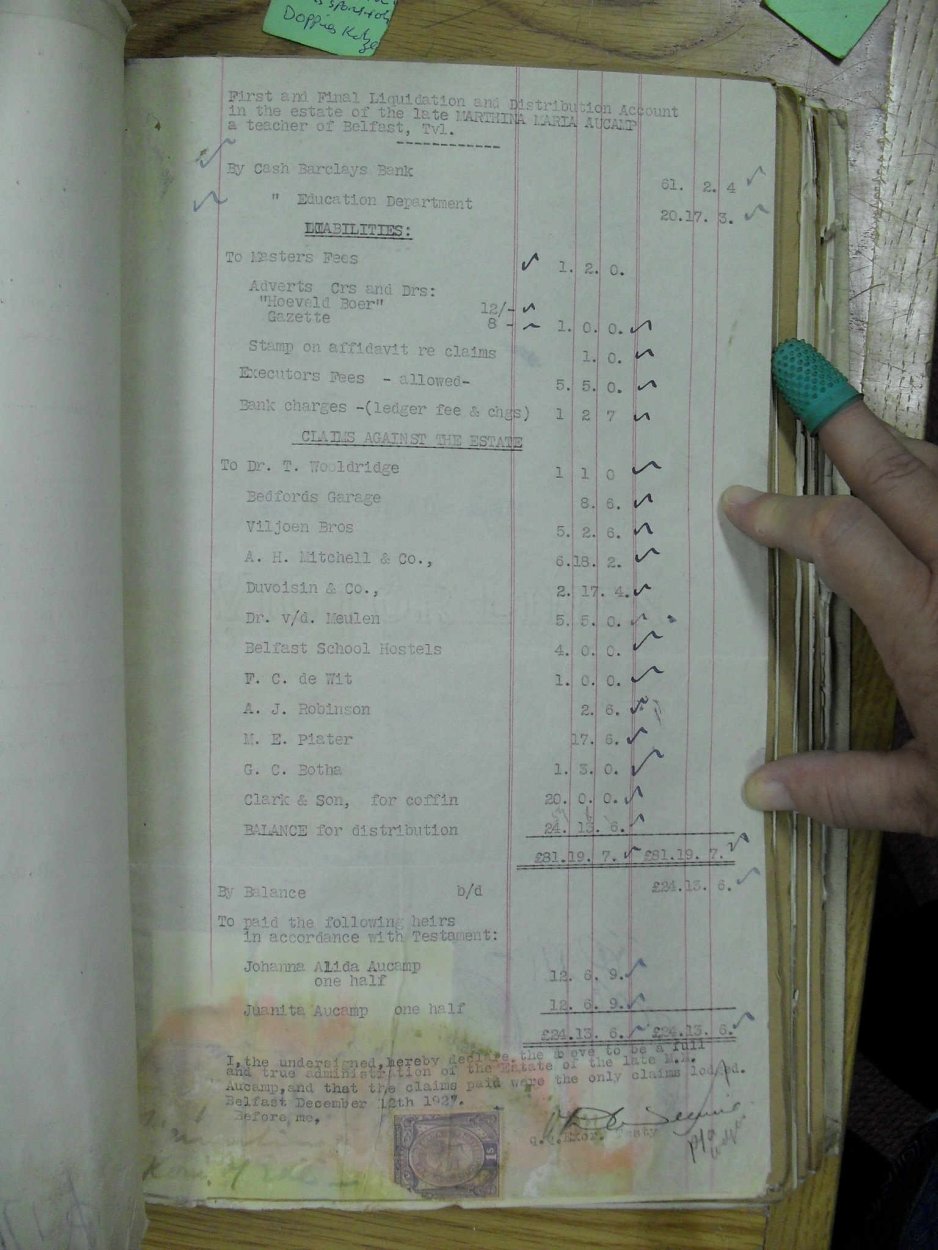 Doppies Kotze
First and Final Liquidation and Distribution Account
in the estate of the late MARTHINA MARIA AUCAMP
a teacher of Belfast, Tvl.
By Cash Barclays Bank 61. 2. 4
" Education Department 20.17. 3.
LIABILITIES:
To Masters Fees 1. 2. 0.
Adverts Crs and Drs:
"Hoeveld Boer" 12/-
Gazette 8 - 1. 0. 0.
Stamp on affidavit re claims 1. 0.
Executors Fees - allowed- 5. 5. 0.
Bank charges -(ledger fee & chgs) 1 2 7
CLAIMS AGAINST THE ESTATE
To Dr. T. Wooldridge 1 1 0
Bedfords Garage 8. 6.
Viljoen Bros 5. 2. 6.
A. H. Mitchell & Co., 6.18. 2.
Duvoisin & Co., 2. 17. 4.
Dr. v/d. Meulen 5. 5. 0.
Belfast School Hostels 4. 0. 0.
F. C. de Wit 1. 0. 0.
A. J. Robinson 2. 6.
M. E. Piater 17. 6.
G. C. Botha 1. 3. 0.
Clark & Son, for coffin 20. 0. 0.
BALANCE for distribution 24. 13. 6.
£81.19. 7. £81.19. 7.
By Balance b/d £24.13. 6.
To paid the following heirs
in accordance with Testament:
Johanna Alida Aucamp
one half 12. 6. 9.
Juanita Aucamp one half 12. 6. 9.
£24.13. 6. £24.13. 6.
I,the undersigned,hereby declare the above to be a full
and true administration of the Estate of the late M.M.
Aucamp,and that the claims paid were the only claims lodged.
Belfast December 12th 1927.
Before me,
q.q. Exor. Testy
1s